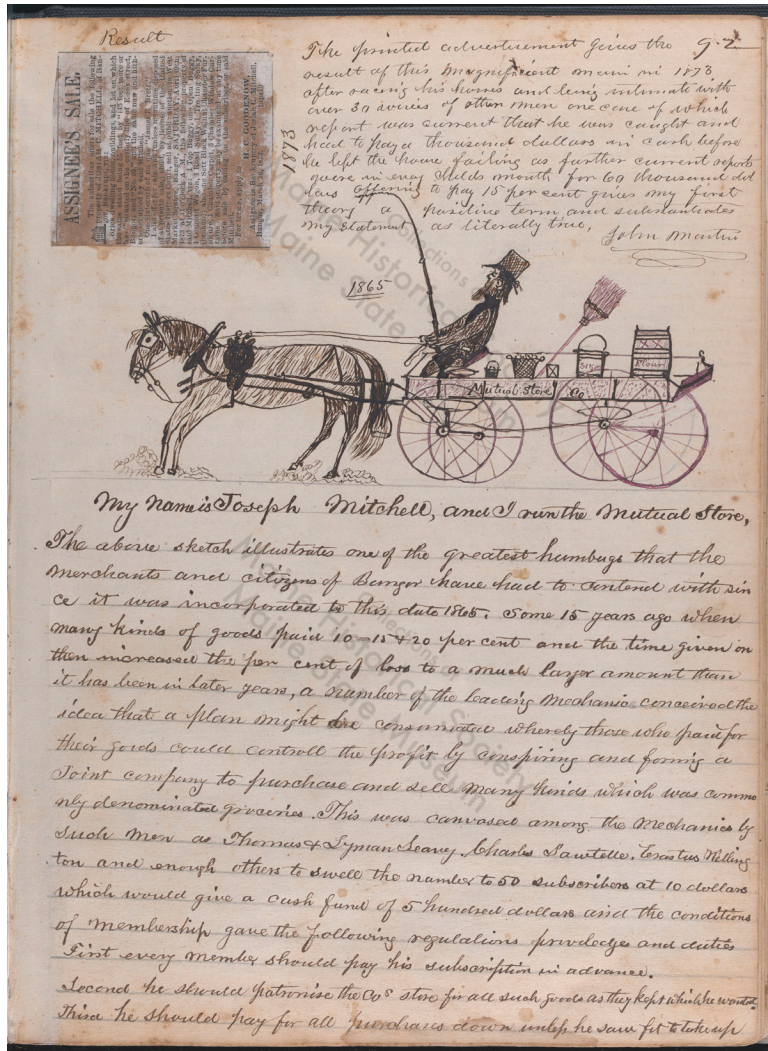 Result
92
ASSIGNEE'S SALE.
H. C. GOODENOW,
1873
The printed advertisement gives the
result of this magnificent man in 1873
after racing his horses and being intimate with
over 30 of other men one case of which
report was current that he was caught and
had to pay a thousand dollars in cash before
he left the house failing as further current reports
were in every childs mouth for 60 thousand dol
lars offering to pay 15 per cent gives my first
theory a positive term and substantiates
my statement as literally true,
John Martin
1865
Mutual Store Co.
Flour
My Name is Joseph Mitchell, and I run the Mutual Store,
The above sketch illustrates one of the greatest humbugs that the
merchants and citizens of Bangor have had to contend with sin
ce it was incorporated to this date 1865. Some 15 years ago when
many kinds of goods paid 10-15 & 20 per cent and the time given on
then increased the per cent of loss to a much larger amount than
it has been in later years, a number of the leading mechanic conceived the
idea that a plan might be consumated whereby those who paid for
their goods could controll the profit by conspiring and forming a
Joint company to purchase and sell many kinds which was commo
nly denominated groceries. This was canvased among the Mechanics by
such men as Thomas & Lyman Seavey, Charles Sawtelle, Erastus Welling
ton and enough others to swell the number to 50 subscribers at 10 dollars
which would give a cash fund of 5 hundred dollars and the conditions
of membership gave the following regulations priviledges and duties
First every member should pay his subscription in advance.
Second he should patronise the Cos store for all such goods as they kept which he wanted.
Third he should pay for all purchases down unless he saw fit to take up
Maine Historical Society
Maine State Museum